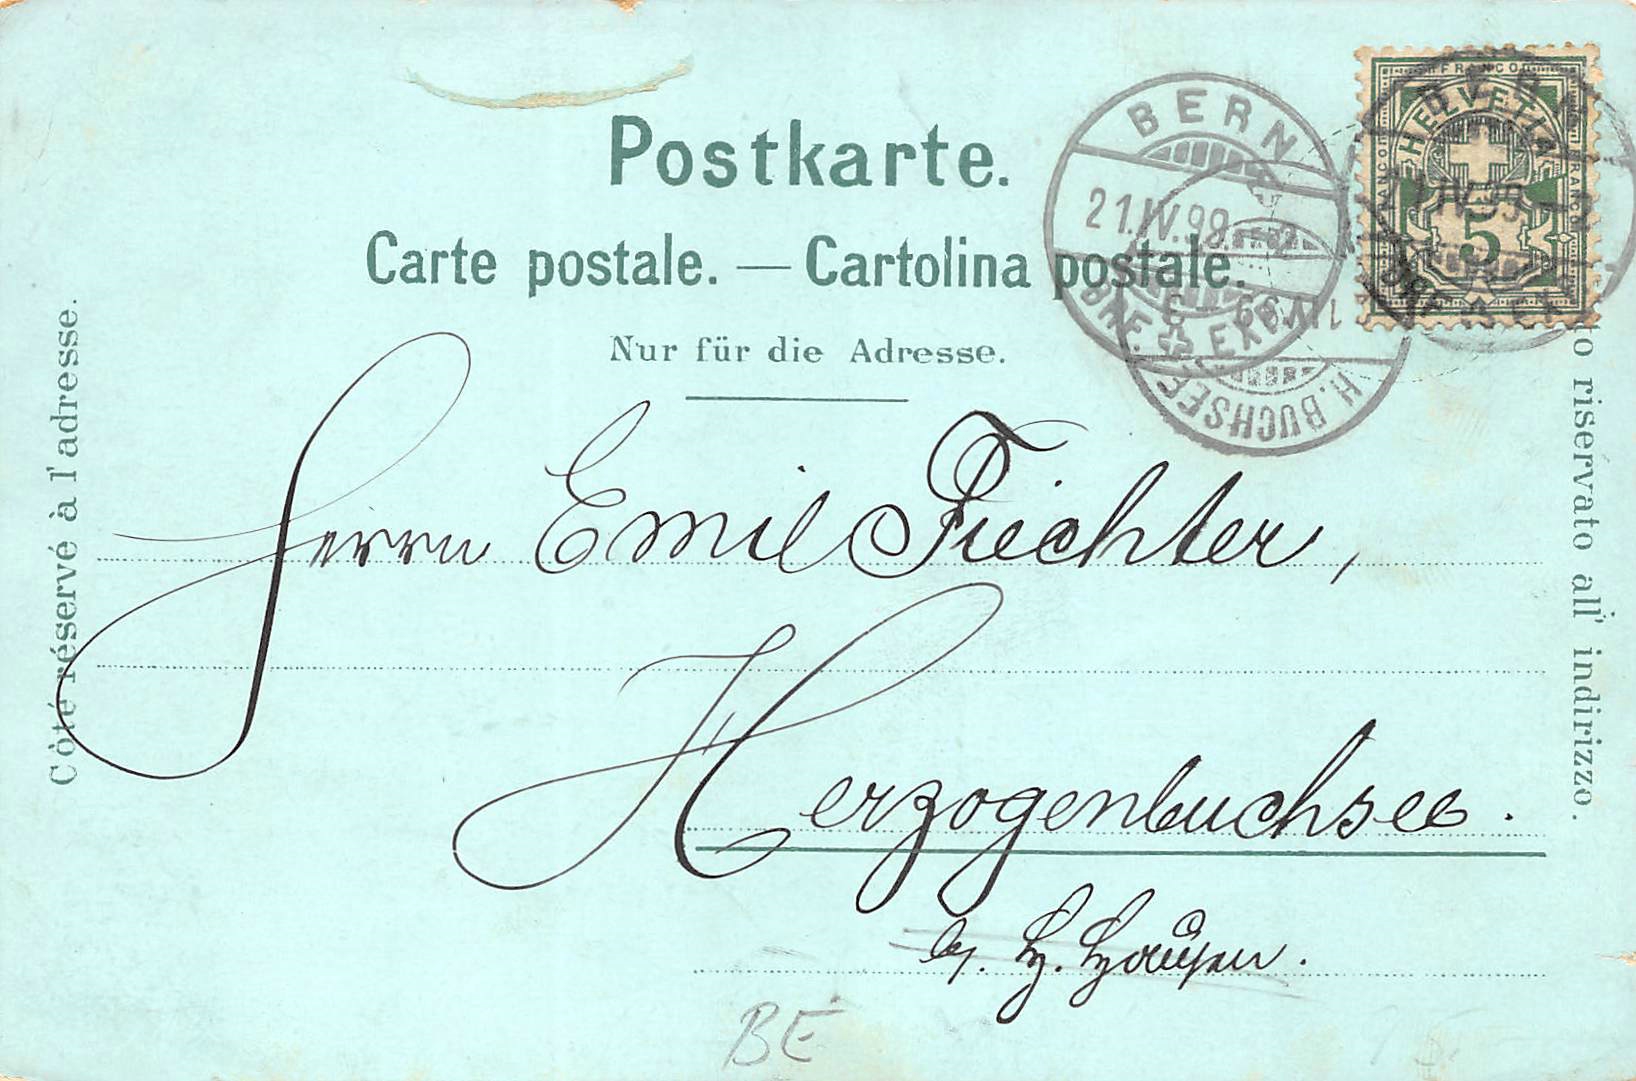 Postkarte.
Carte postale. — Cartolina postale.
Nur für die Adresse.
Côté réservé à l'adresse.
riservato all' indirizzo.
BERN
21.IV.99.
BRF. EXP.
H. BUCHSEE
FRANCO
HELVETIA
FRANCO
FRANCO
5
Herrn Emil Fiechter,
Herzogenbuchsee.
BE